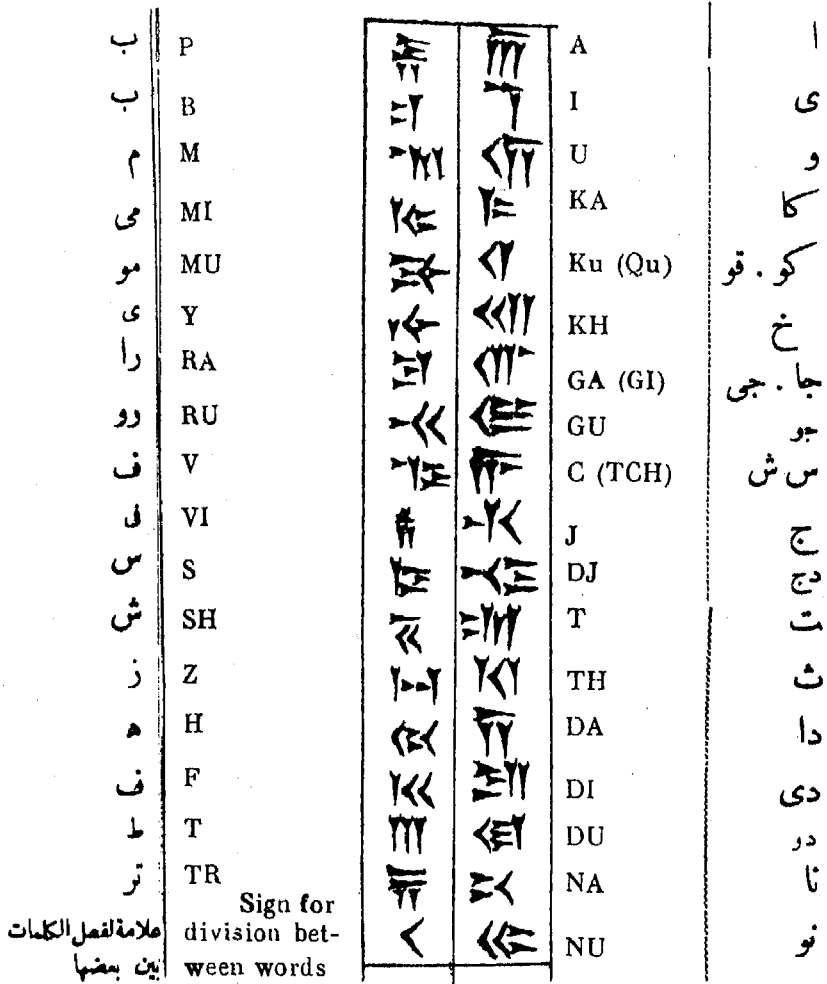 ب P 𐎱 𐎠 A ا
ب B 𐎲 𐎡 I ى
م M 𐎶 𐎢 U و
مى MI 𐎷 𐎣 KA كا
مو MU 𐎸 𐎤 Ku (Qu) كو . قو
ى Y 𐎹 𐎧 KH خ
را RA 𐎼 𐎥 GA (GI) جا . جى
رو RU 𐎽 𐎦 GU جو
ف V 𐎺 𐎨 C (TCH) س ش
فى VI 𐎻 𐎩 J ج
س S 𐎿 𐎪 DJ دج
ش SH 𐏁 𐎫 T ت
ز Z 𐏀 𐎰 TH ث
ه H 𐏃 𐎭 DA دا
ف F 𐎳 𐎮 DI دى
ط T 𐎬 𐎯 DU دو
تر TR 𐏂 𐎴 NA نا
علامة لفصل الكلمات بين بعضها
Sign for
division bet-
ween words
𐏐 𐎵 NU نو